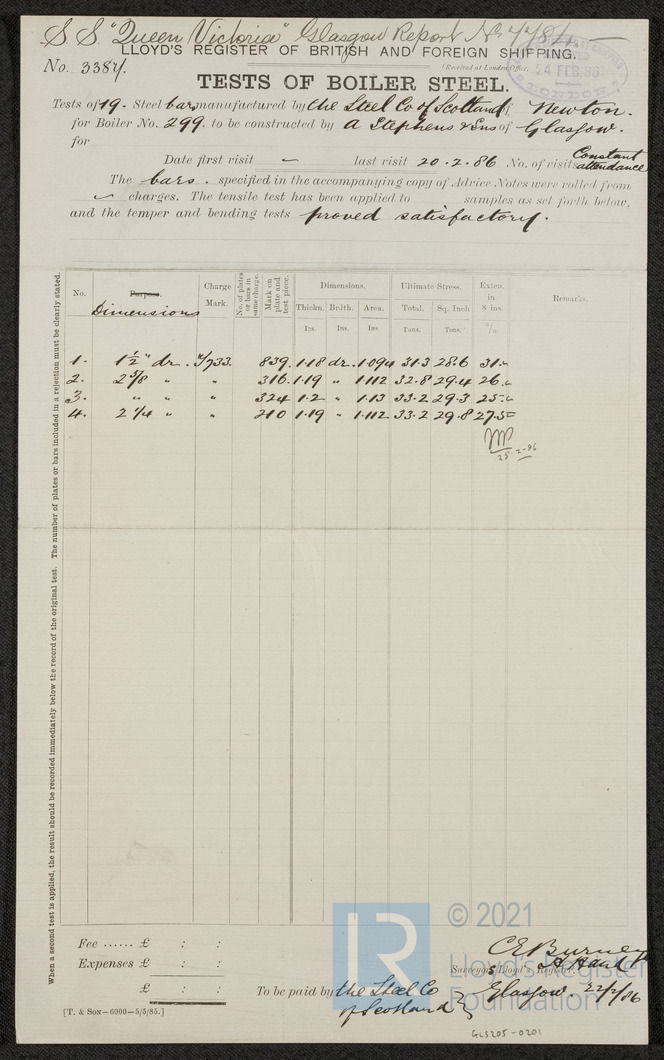 S. S. "Queen Victoria" Glasgow Report No.
LLOYD'S REGISTER OF BRITISH AND FOREIGN SHIPPING.
(Received at London Office,
24 FEB. 86
LONDON
No. 3384.
TESTS OF BOILER STEEL.
Tests of 19. Steel bars manufactured by the Steel Co of Scotland, Newton.
for Boiler No. 299. to be constructed by A Stephens & Sns of Glasgow.
for
Date first visit — last visit 20.2.86 No. of visits Constant attendance
The bars. specified in the accompanying copy of Advice Notes were rolled from
charges. The tensile test has been applied to samples as set forth below,
and the temper and bending tests proved satisfactory.
When a second test is applied, the result should be recorded immediately below the record of the original test. The number of plates or bars included in a rejection must be clearly stated.
No. Purpose. Dimensions Charge Mark. No. of plates or bars in same charge. Mark on plate and test piece. Dimensions. Ultimate Stress. Exten. in 8 ins. Remarks.
Thickn. Brdth. Area. Total. Sq. Inch
Ins. Ins. Ins. Tons. Tons. %
1. 1½" dr. 839. 1.18 dr. 1.094 31.3 28.6 31.
2. 2 3/8 " " 316. 1.19 " 1.112 32.8 29.4 26.
3. " " " 324 1.2 " 1.13 33.2 29.3 25.
4. 2 1/4 " " 210 1.19 " 1.112 33.2 29.8 27.5
25-2-86
Fee ...... £ : :
Expenses £ : :
£ : :
C E Burney
A Hand
Surveyors Lloyd's Register.
To be paid by the Steel Co of Scotland
Glasgow. 22/2/86
[T. & SON—6000—5/5/85.]
LR © 2021
Lloyd's Register
Foundation
GLS205-0201